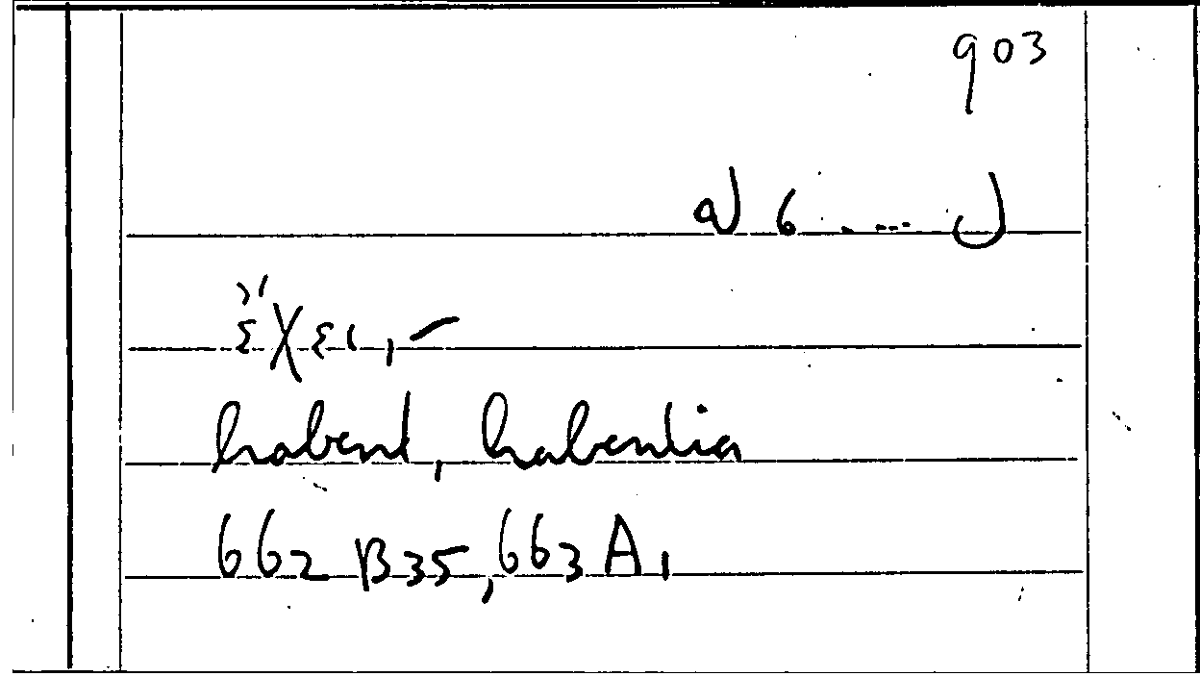 903
ل .... ه له
ἔχει, –
habent, habentia
662 B35, 663 A1